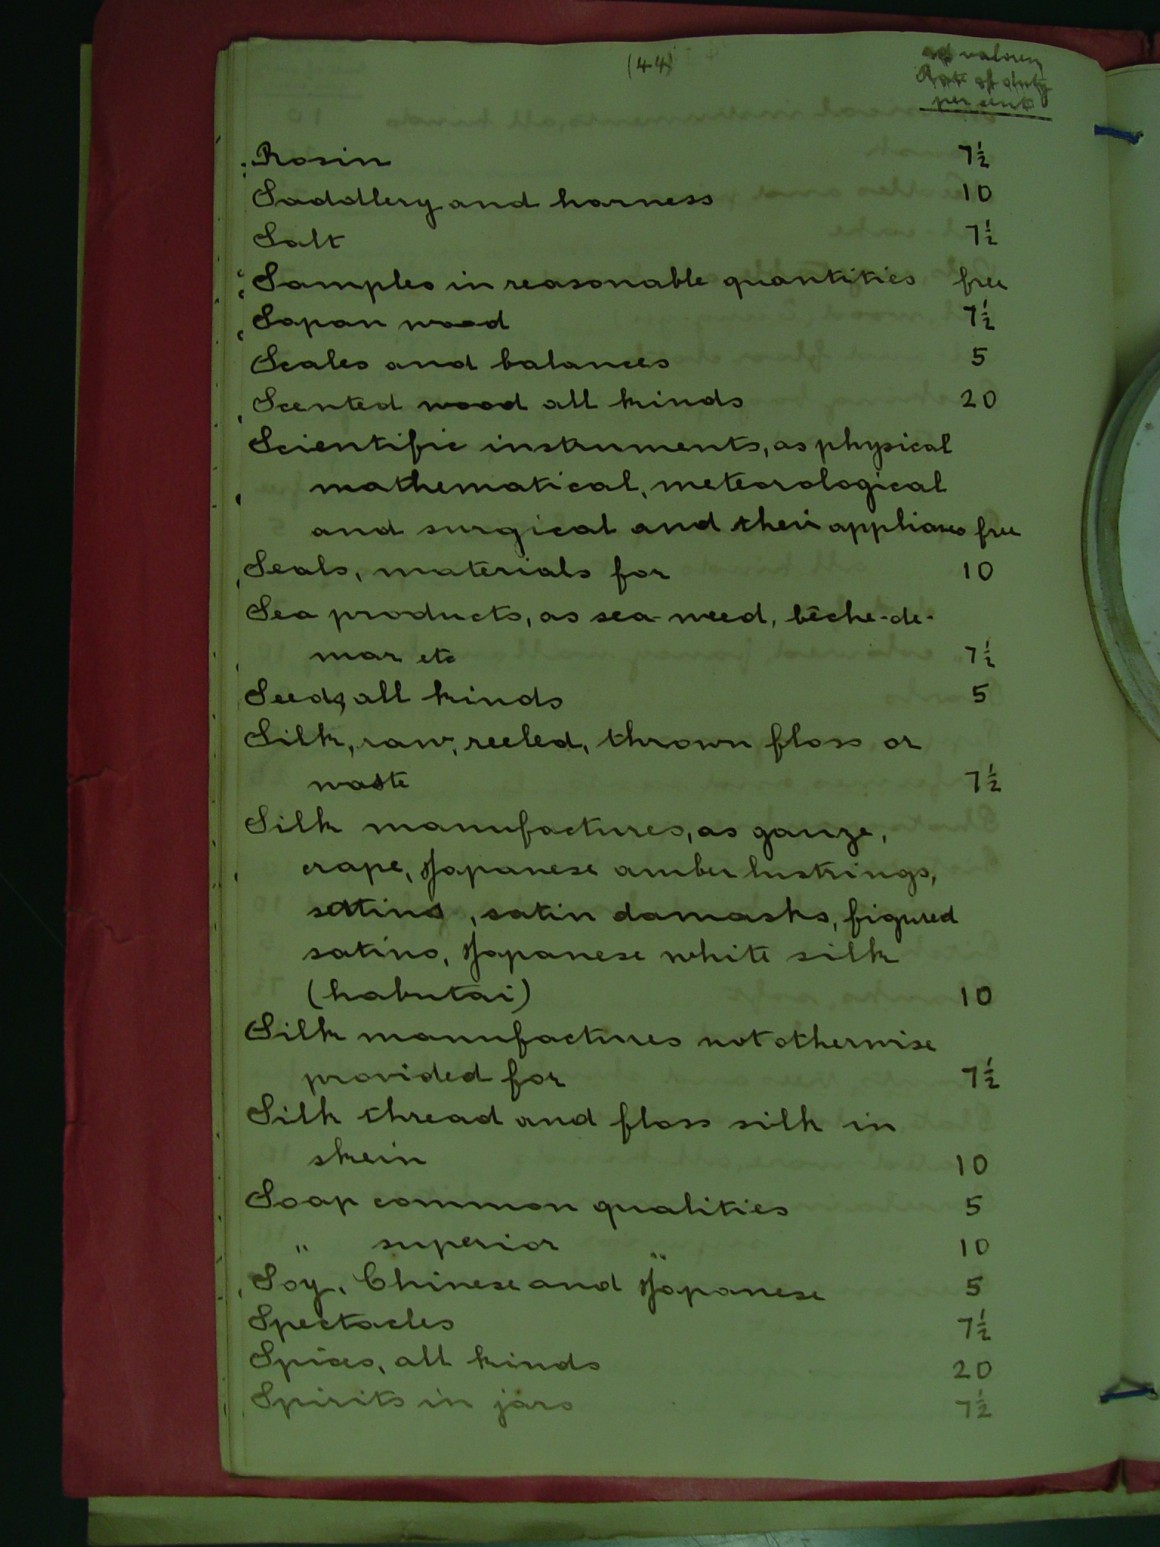 (44)
ad valorem
Rate of duty
per cent
Rosin 7½
Saddlery and harness 10
Salt 7½
Samples in reasonable quantities free
Sapan wood 7½
Scales and balances 5
Scented wood all kinds 20
Scientific instruments, as physical
mathematical, meteorological
and surgical and their appliances free
Seals, materials for 10
Sea products, as sea-weed, bêche-de-
mar etc 7½
Seeds, all kinds 5
Silk, raw, reeled, thrown floss or
waste 7½
Silk manufactures, as gauze,
crape, Japanese amber lustrings,
satins, satin damasks, figured
satins, Japanese white silk
(habutai) 10
Silk manufactures not otherwise
provided for 7½
Silk thread and floss silk in
skein 10
Soap common qualities 5
" superior 10
Soy, Chinese and Japanese 5
Spectacles 7½
Spices, all kinds 20
Spirits in jars 7½